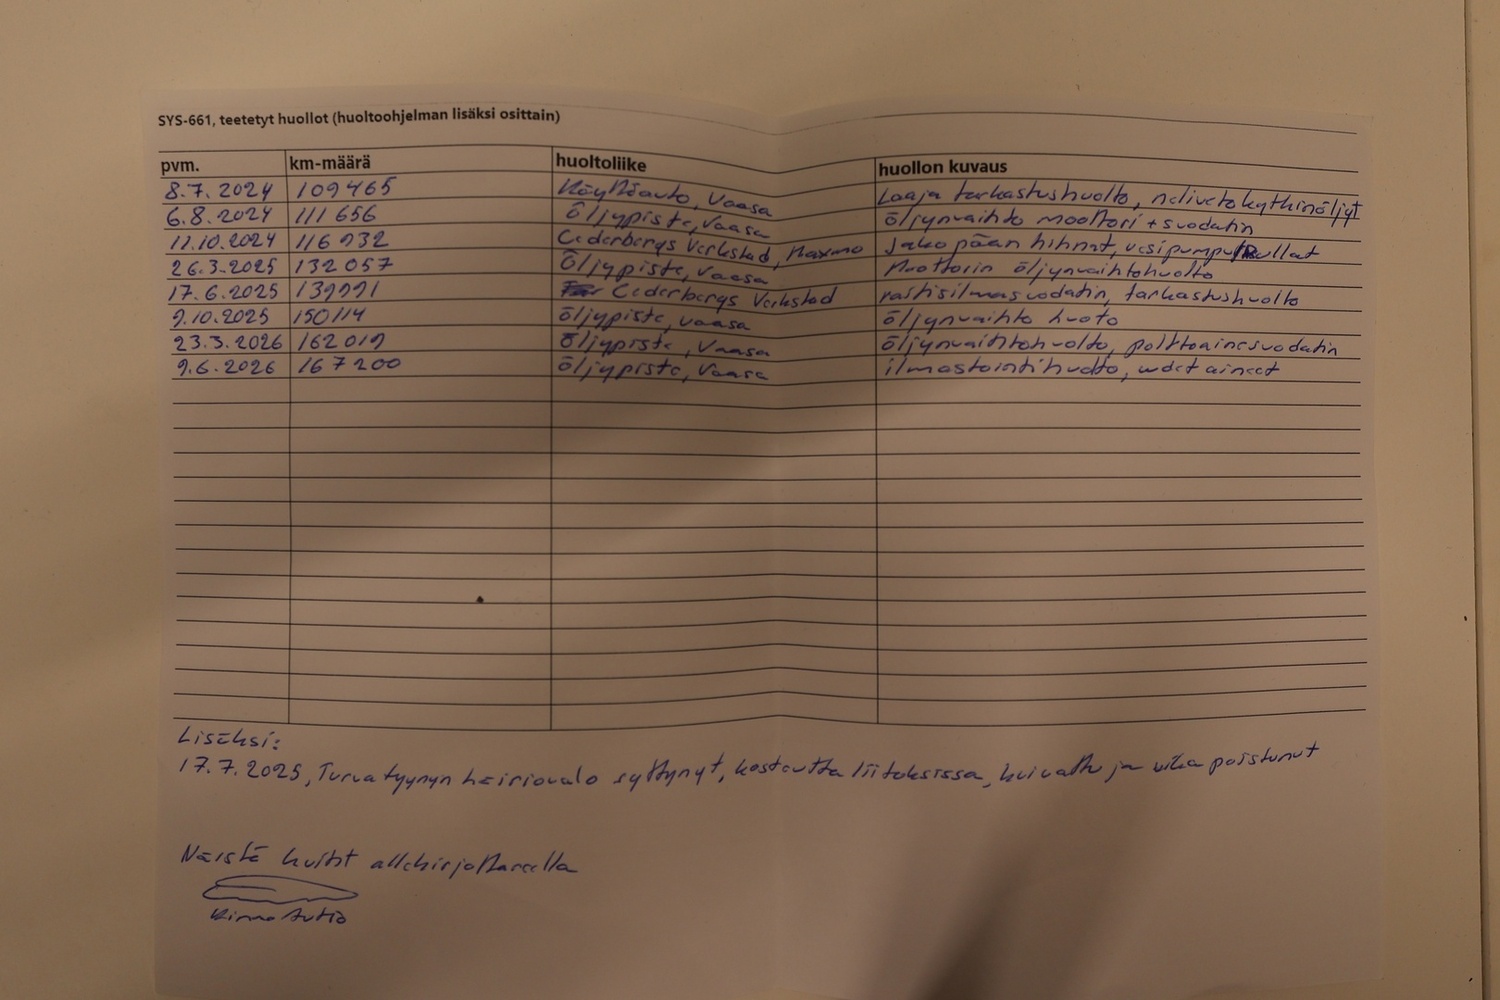 SYS-661, teetetyt huollot (huoltoohjelman lisäksi osittain)
pvm. km-määrä huoltoliike huollon kuvaus
8.7.2024 109465 Käyttöauto, Vaasa Laaja tarkastushuolto, nelivetokytkinöljyt
6.8.2024 111 656 Öljypiste, Vaasa öljynvaihto moottori + suodatin
11.10.2024 116 932 Cederbergs Verkstad, Maxmo Jakopään hihnat, vesipumpu rullat
26.3.2025 132 057 Öljypiste, Vaasa Moottorin öljynvaihtohuolto
17.6.2025 139991 Cederbergs Verkstad raitisilmasuodatin, tarkastushuolto
9.10.2025 150114 öljypiste, Vaasa öljynvaihto huoto
23.3.2026 162019 öljypiste, Vaasa öljynvaihtohuolto, polttoainesuodatin
9.6.2026 167200 öljypiste, Vaasa ilmastointihuolto, uudet aineet
Lisäksi:
17.7.2025, Turvatyynyn häiriövalo syttynyt, kosteutta liitoksissa, kuivattu ja vika poistunut
Näistä kuitit allekirjoittaneella
Autio